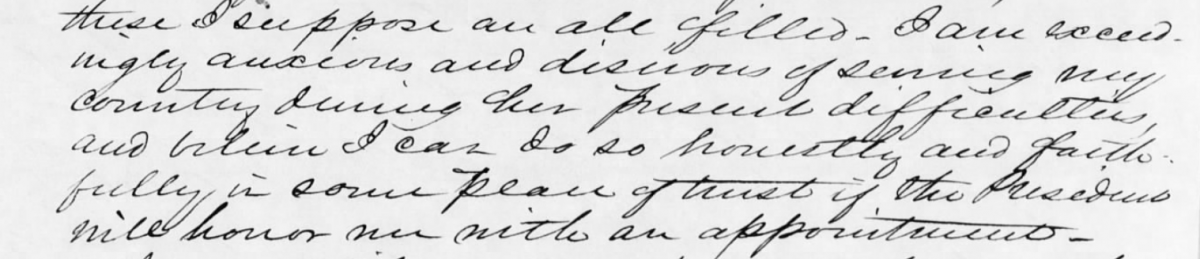 these I suppose are all filled - I am exceed-
ingly anxious and desirous of serving my
country during her present difficulties,
and believe I can do so honestly and faith-
fully, in some place of trust if the President
will honor me with an appointment -